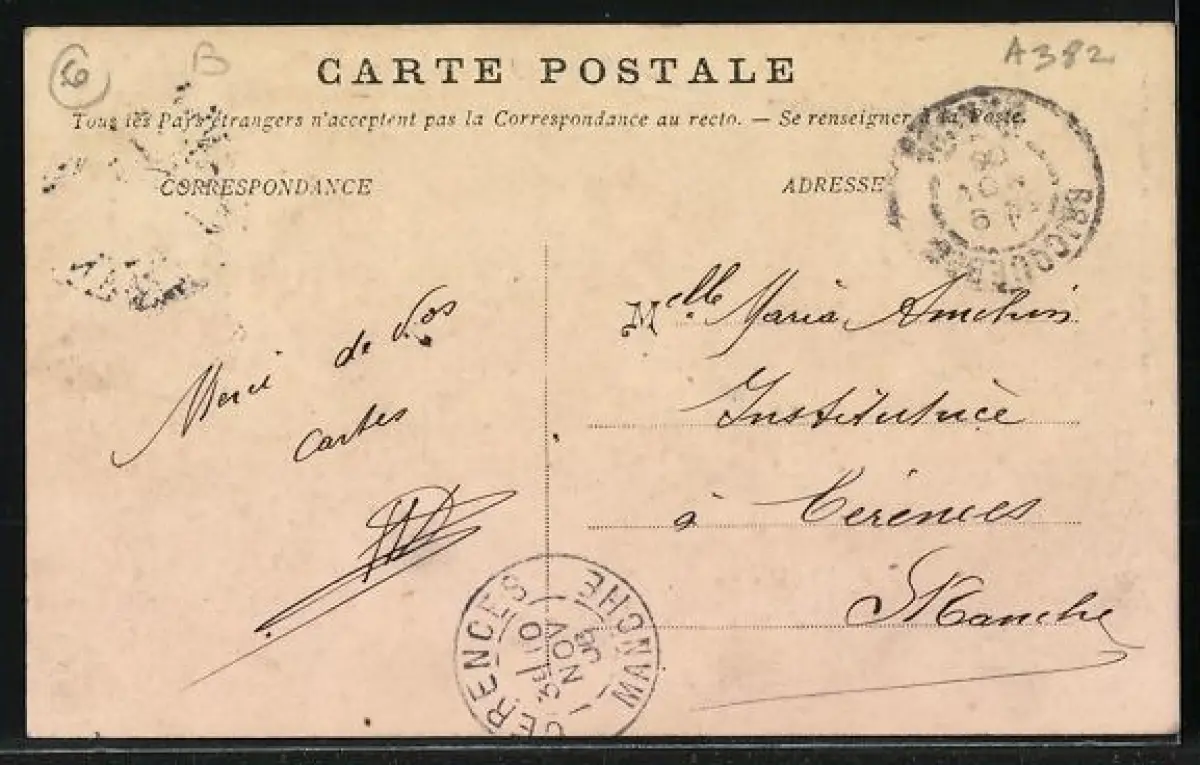 6
B
A382
CARTE POSTALE
Tous les Pays étrangers n'acceptent pas la Correspondance au recto. — Se renseigner à la Poste.
CORRESPONDANCE
ADRESSE
BRICQUEBEC
Merci de vos
cartes
Melle Maria
Institutrice
à Cérences
Manche
CERENCES
MANCHE
10
NOV